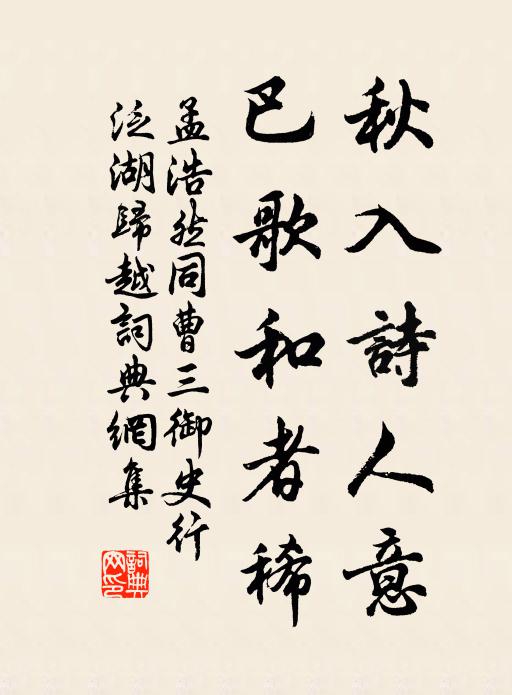 秋入詩人意
巴歌和者稀
孟浩然同曹三御史行
泛湖歸越詞典網集
詞典
网印